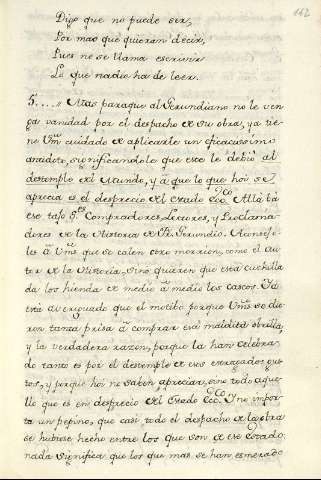 142
Digo que no puede ser,
Por mas que quieran decir,
Pues no se llama escrivir
Lo que nadie ha de leer.
5.....» Mas paraque al Gerundiano no le ven
ga vanidad por el despacho de su obra, ya tie
ne Vm cuidado de aplicarle un eficacissimo
antidoto, significandole que este le debiò al
destemple del Mundo, y à que lo que hoi se
aprecia es el desprecio del Estado Ecco. Allà bà
ese tajo Sres Compradores, Lectores, y Proclama
dores de la Historia de Fr. Gerundio. Aconseje
les à Vms que se calen otro morrion, como el Au
tor de la Historia, sino quieren que esta cuchilla
da los hienda de medio à medio los cascos. Ya
està averiguado que el motibo porque Vms se die
ron tanta prisa à comprar esa maldita obrilla,
y la verdadera razon, porque la han celebra
do tanto es por el destemple de sus estragados gus
tos, y porque hoi no saben apreciar, sino todo aque
llo que es en desprecio del Estado Ecco. Y no impor
ta un pepino, que casi todo el despacho de la obra
se hubiese hecho entre los que son de ese estado:
nada significa que los que mas se han esmerado